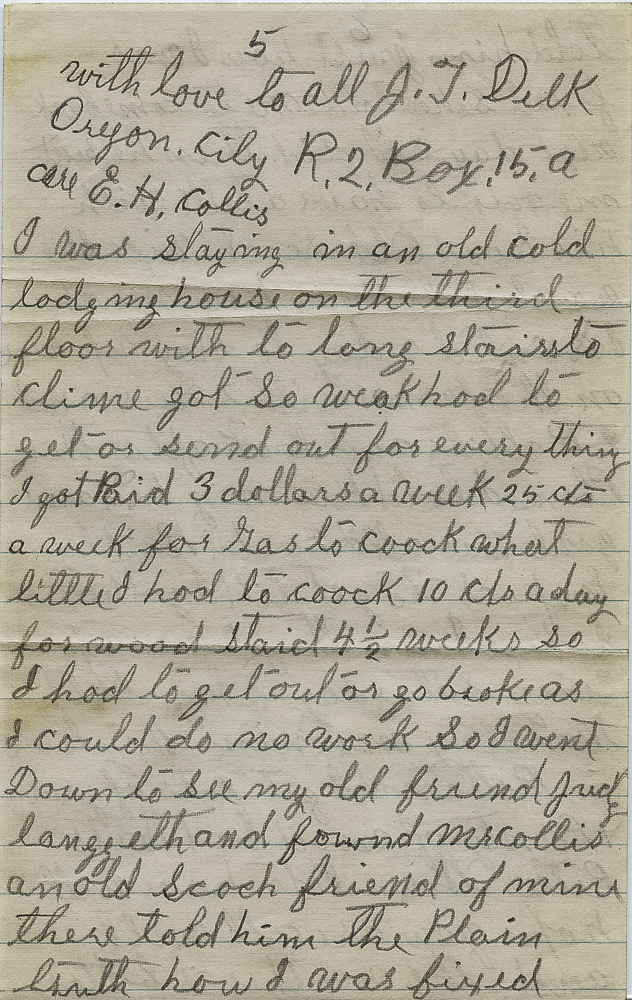 5
with love to all J. T. Delk
Oregon. City R. 2. Box. 15. a
care E. H. Collis
I was staying in an old cold
lodging house on the third
floor with to long stairs to
clime got so weak had to
get or send out for every thing
I got Paid 3 dollars a week 25 cts
a week for Gas to coock what
little I had to coock 10 cts a day
for wood staid 4 1/2 weeks so
I had to get out or go broke as
I could do no work So I went
Down to see my old friend Judg
langgeth and fownd mr collis
an old Scoch friend of mine
there told him the Plain
truth how I was fixed